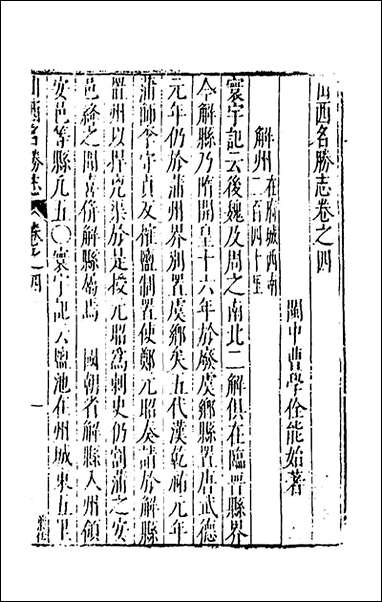 山西名勝志卷之四
閩中曹學佺能始著
解州在府城西南二百四十里
寰宇記云後魏及周之南北二解俱在臨晉縣界
今解縣乃隋開皇十六年於廢虞鄉縣置唐武德
元年仍於蒲州界別置虞鄉矣五代漢乾祐元年
蒲帥李守貞反權鹽制置使鄭元昭奏請於解縣
置州以捍兇渠於是授元昭為刺史仍割蒲之安
邑絳之聞喜併解縣屬焉 國朝省解縣入州領
安邑等縣凡五〇寰宇記云鹽池在州城東五里
山西名勝志 卷之四 一